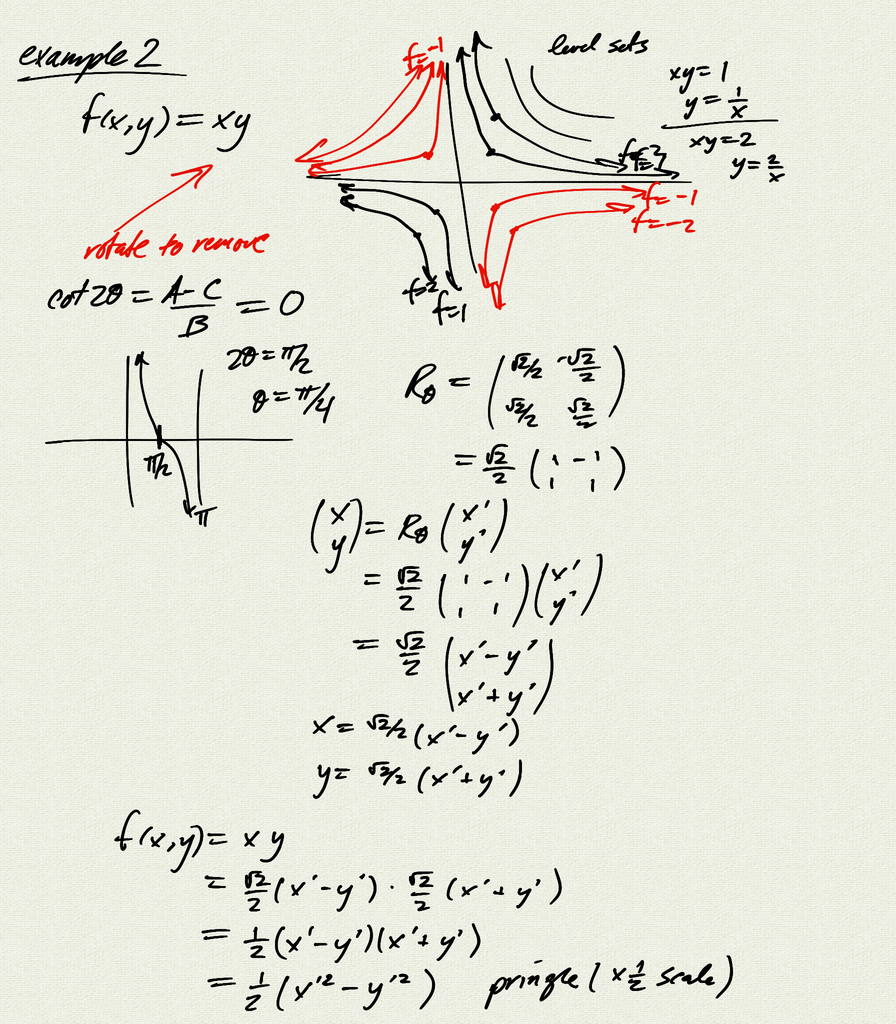 example 2
f(x,y) = xy
rotate to remove
cot 2θ = (A-C)/B = 0
2θ = π/2
θ = π/4
π/2
π
f=-1
level sets
xy = 1
y = 1/x
xy = 2
y = 2/x
f=2
f=1
f=-1
f=-2
f=2
f=1
R_θ = ( √2/2 -√2/2
√2/2 √2/2 )
= √2/2 ( 1 -1
1 1 )
( x
y ) = R_θ ( x'
y' )
= √2/2 ( 1 -1
1 1 ) ( x'
y' )
= √2/2 ( x'-y'
x'+y' )
x = √2/2 (x'-y')
y = √2/2 (x'+y')
f(x,y) = x y
= √2/2 (x'-y') · √2/2 (x'+y')
= 1/2 (x'-y')(x'+y')
= 1/2 (x'² - y'²) pringle (×1/2 scale)